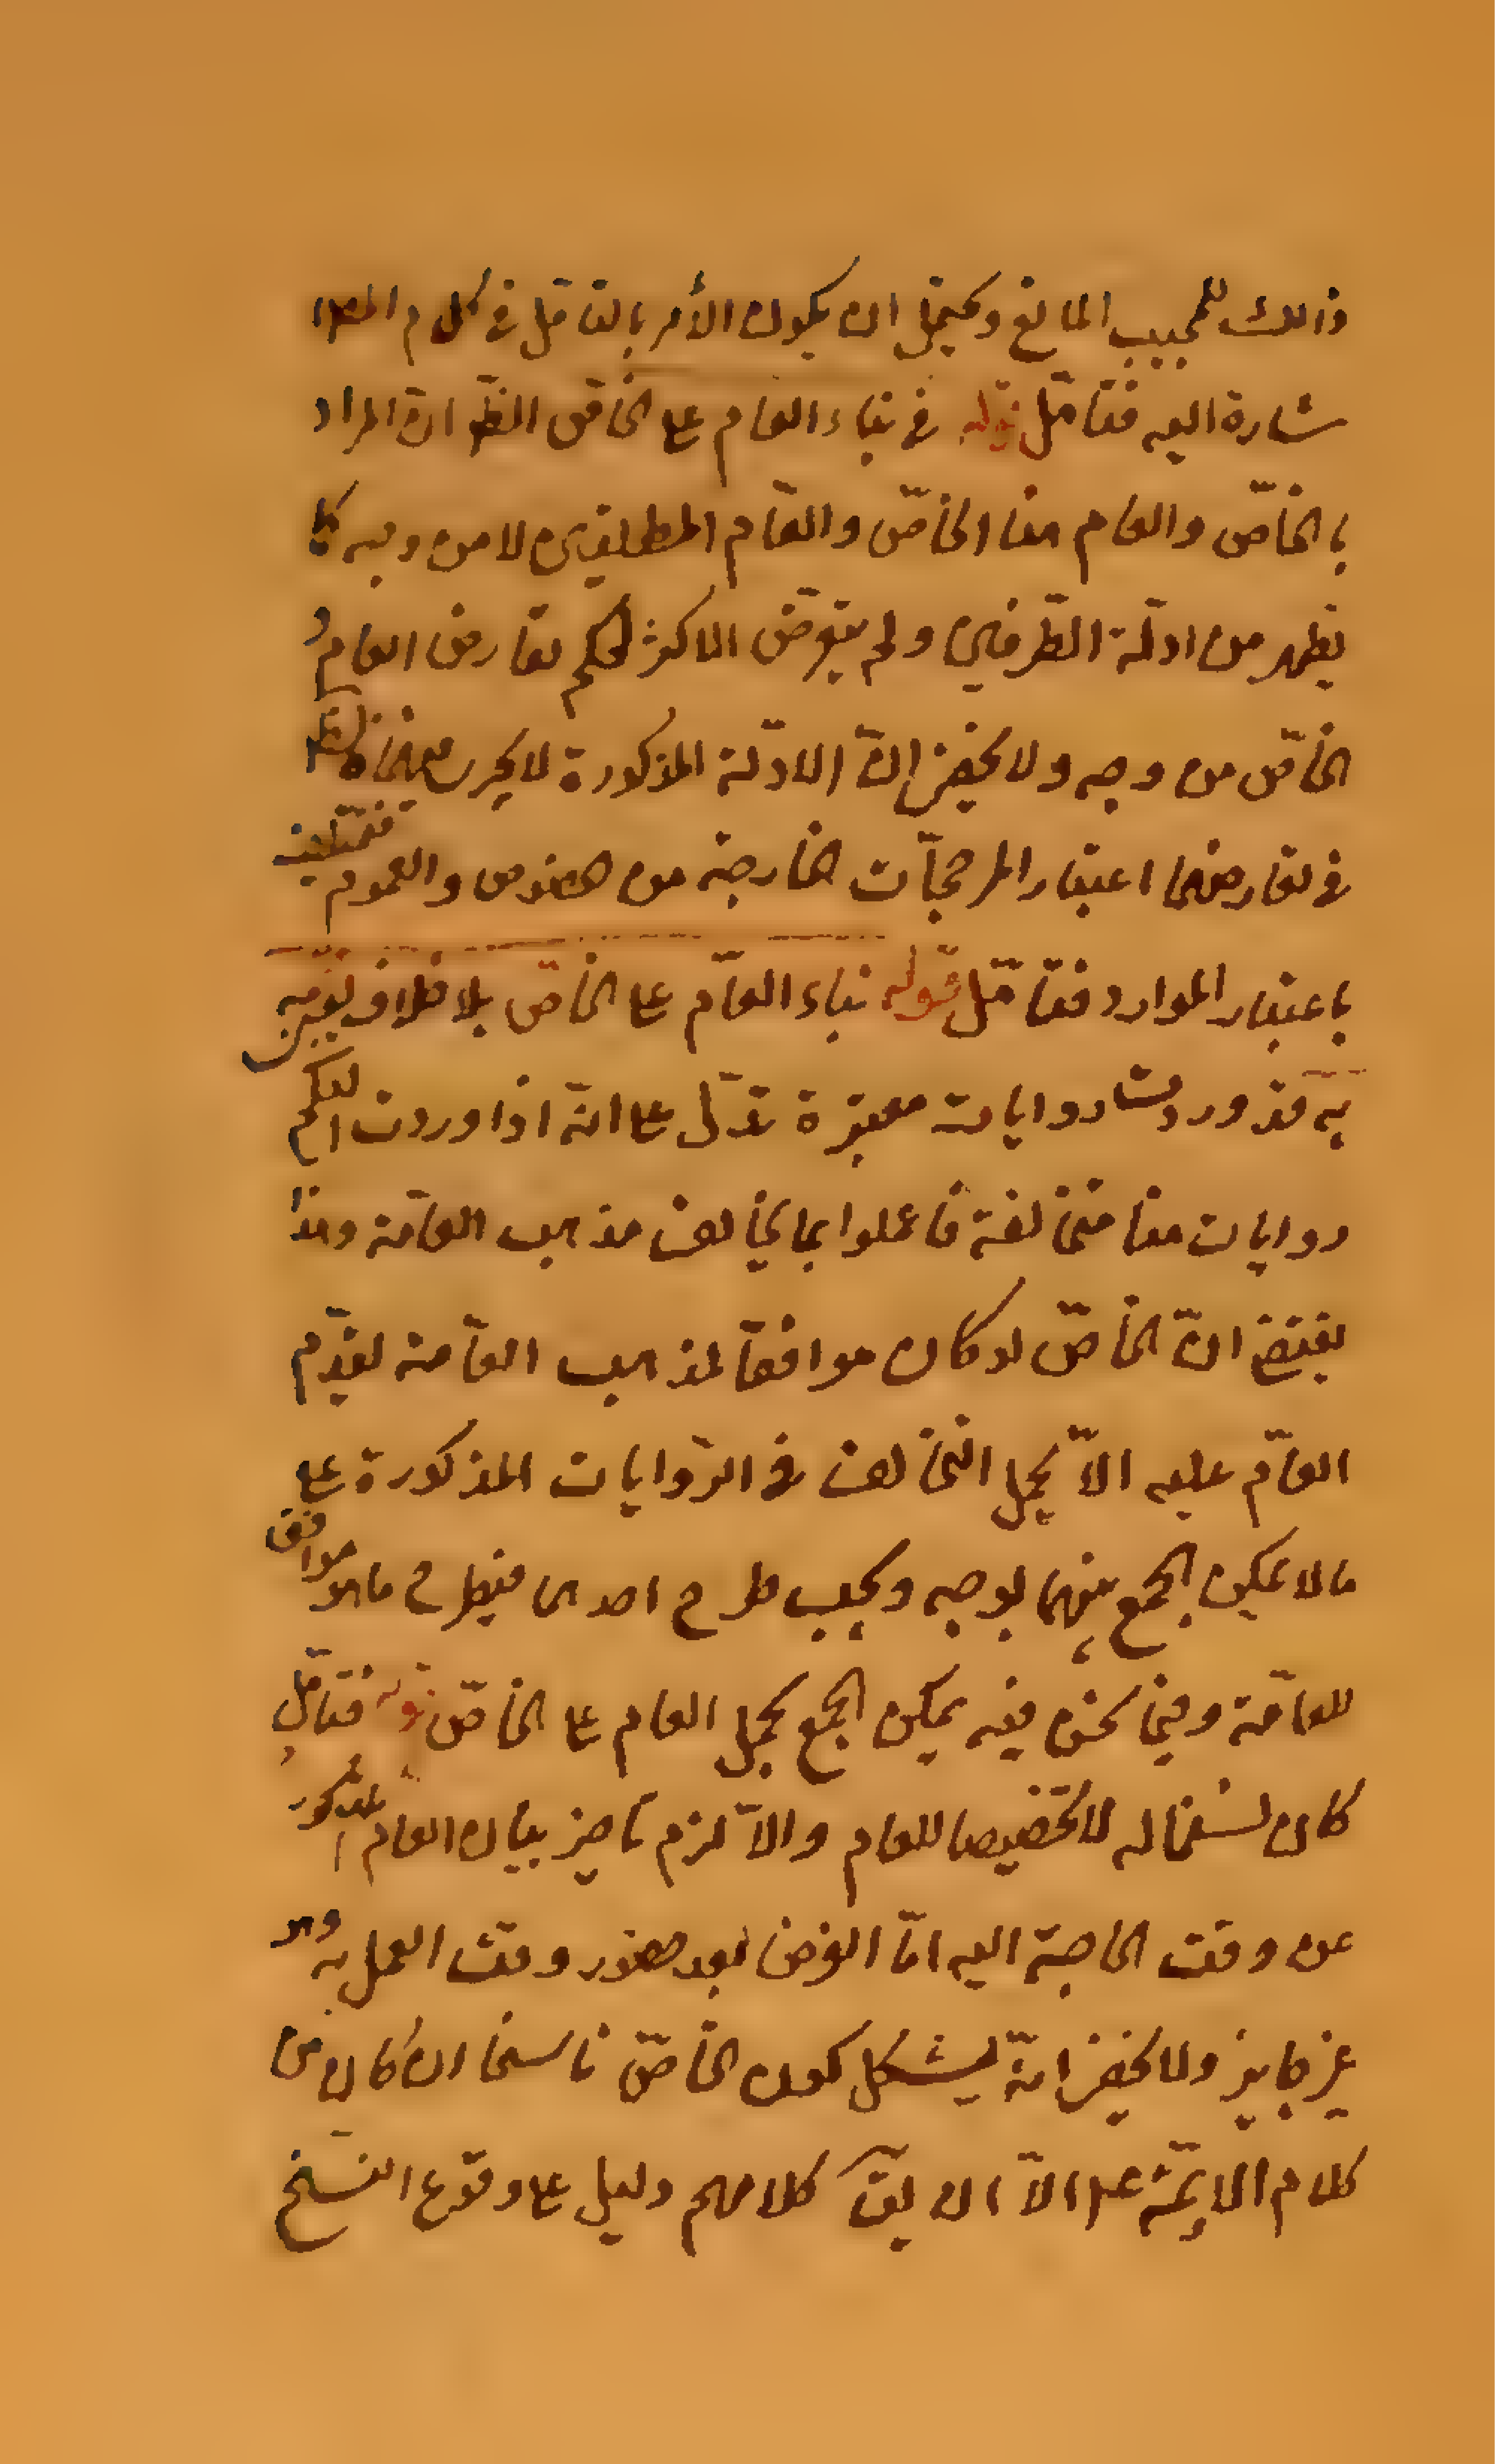 ذالك للمجيب المانع ويحتمل ان يكون الأمر بالتامّل في كلام المص ا
شارة اليه فتامّل قوله في بناء العام على الخاصّ الظّ انّ المراد
بالخاصّ والعام هنا الخاصّ والعّام المطلقين لا من وجه كما
يظهر من ادلّة الطّرفين ولم يتعرّض الاكثر لحكم تعارض العام و
الخاصّ من وجه ولا يخفى انّ الادلّة المذكورة لا يجرى
في تعارضهما اعتبار المرجّحات الخارجة من الخصوص والعموم فيختلف
باعتبار الموارد فتامّل قوله بناء العّام على الخاصّ بلا خلاف
به قد وردت روايات معتبرة تدّل على انّه اذا وردت لكم
روايات منا مختلفة فاعملوا بما يخالف مذهب العامّة وهذا
يقتضي انّ الخاصّ لو كان موافقا لمذهب العامّة لقدّم
العّام عليه الاّ يحمل التخالف في الرّوايات المذكورة على
ما لا يمكن الجمع بينهما بوجه ويجب طرح احدى فيطرح ما هو موافق
للعامّة وفيما نحن فيه يمكن الجمع بحمل العام على الخاصّ قوله فتامّل
كان نسخا له لا تخصيصا للعام والاّ لزم تاخير بيان العام المذكور
عن وقت الحاجة اليه امّا الفرض بعد حضور وقت العمل به وهو
غير جايز ولا يخفى انّه يشكل كون الخاصّ ناسخا ان كان من
كلام الائمّة عم الاّ ان يقّ كلامهم دليل على وقوع النسخ